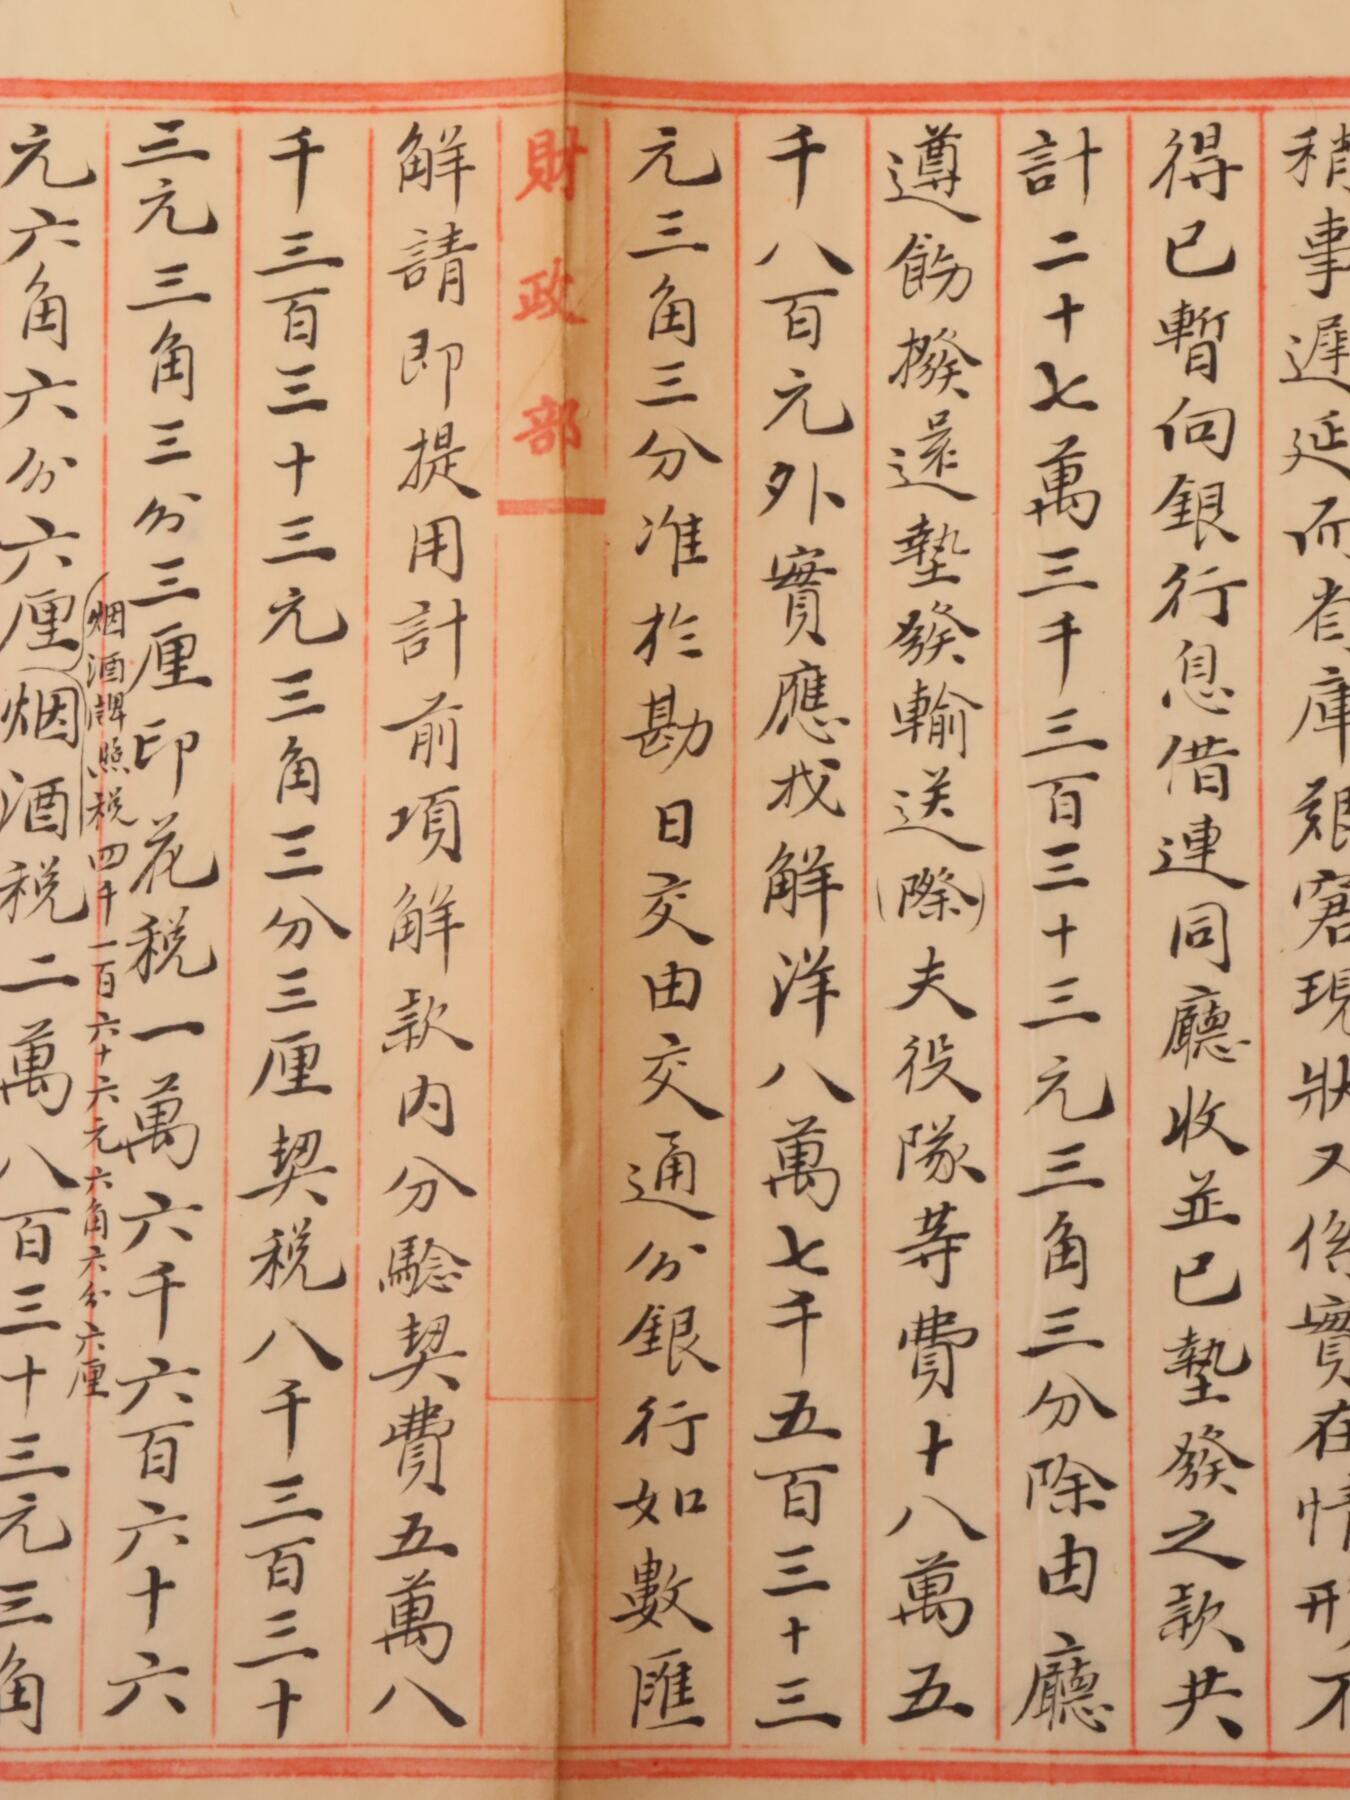 稍事遲延而省庫艱窘現狀又係實在情形不
得已暫向銀行息借連同廳收並已墊發之款共
計二十七萬三千三百三十三元三角三分除由廳
遵飭撥還墊發輸送(際)夫役隊等費十八萬五
千八百元外實應找解洋八萬七千五百三十三
元三角三分准於勘日交由交通分銀行如數匯
財政部
解請即提用計前項解款內分驗契費五萬八
千三百三十三元三角三分三厘契稅八千三百三十
三元三角三分三厘印花稅一萬六千六百六十六
元六角六分六厘(烟酒稅二萬八百三十三元三角
烟酒牌照稅四千一百六十六元六角六分六厘